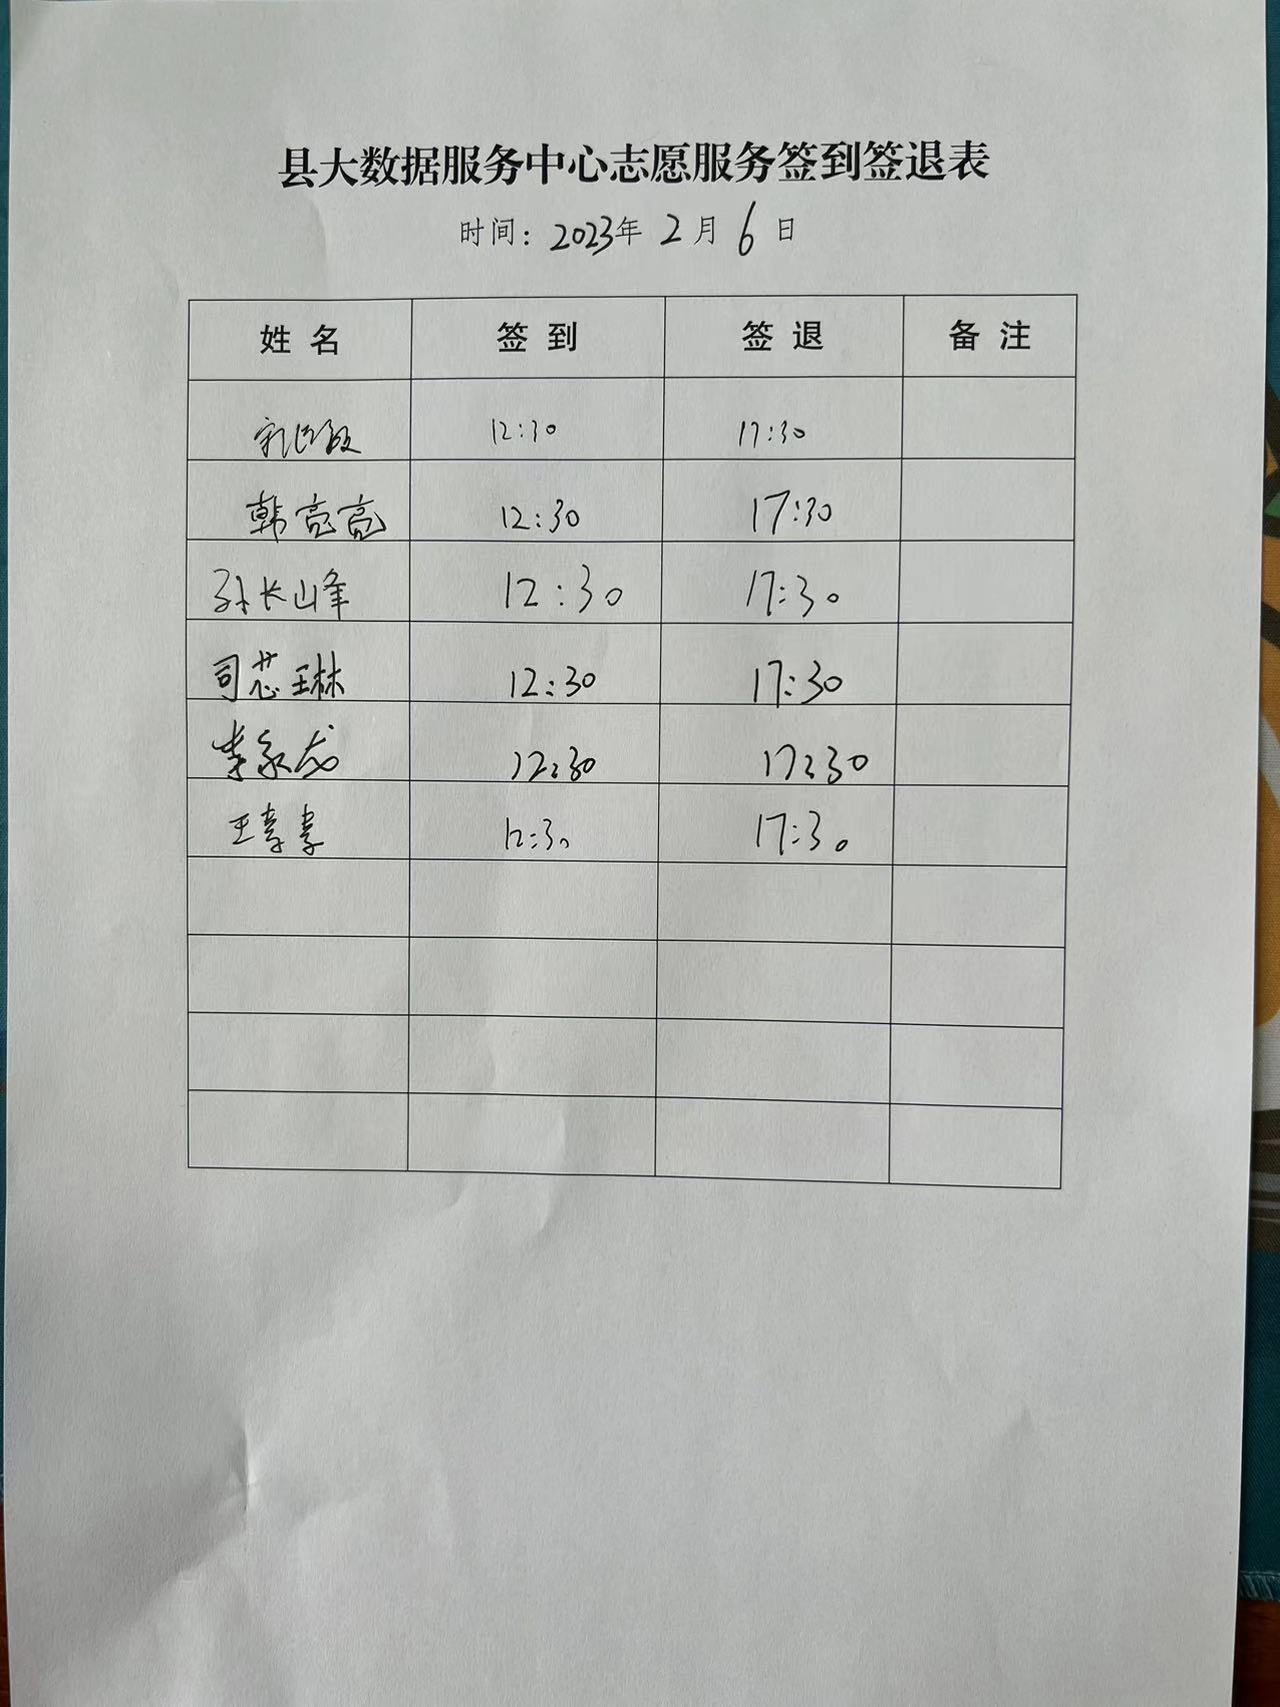 县大数据服务中心志愿服务签到签退表
时间：2023年 2 月 6 日
姓名 签到 签退 备注
12:30 17:30
韩亮亮 12:30 17:30
孙长山峰 12:30 17:30
司芯琳 12:30 17:30
李永龙 12:30 17:30
王 12:30 17:30